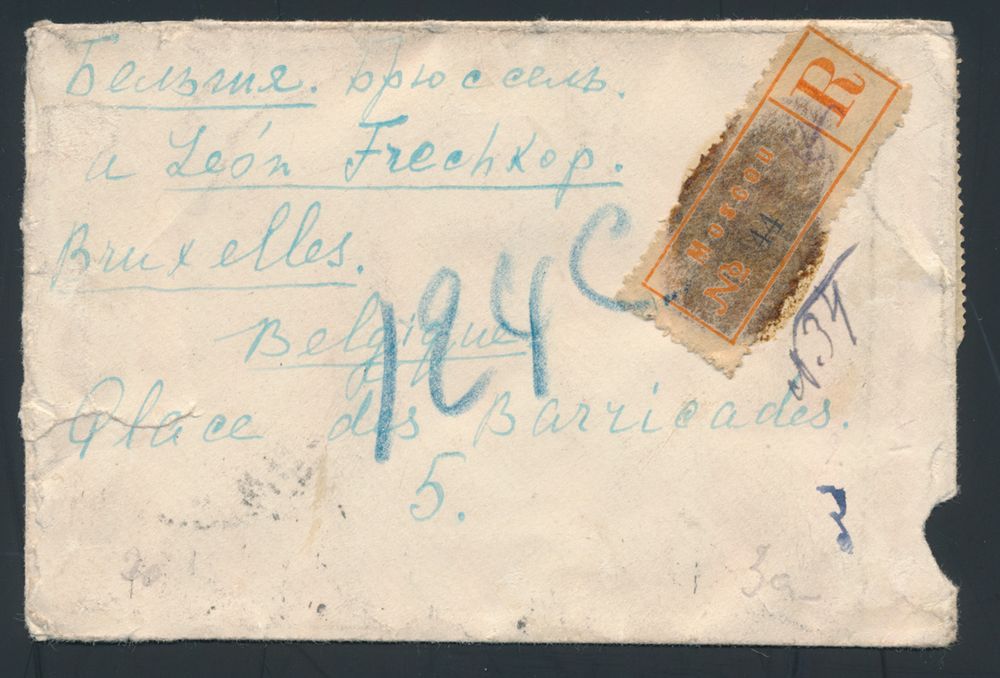 Бельгия. Брюссель.
a León Frechkop.
Bruxelles.
Belgique
Place des Barricades.
5.
124 C
R
Moscou
№ 44
N. 34